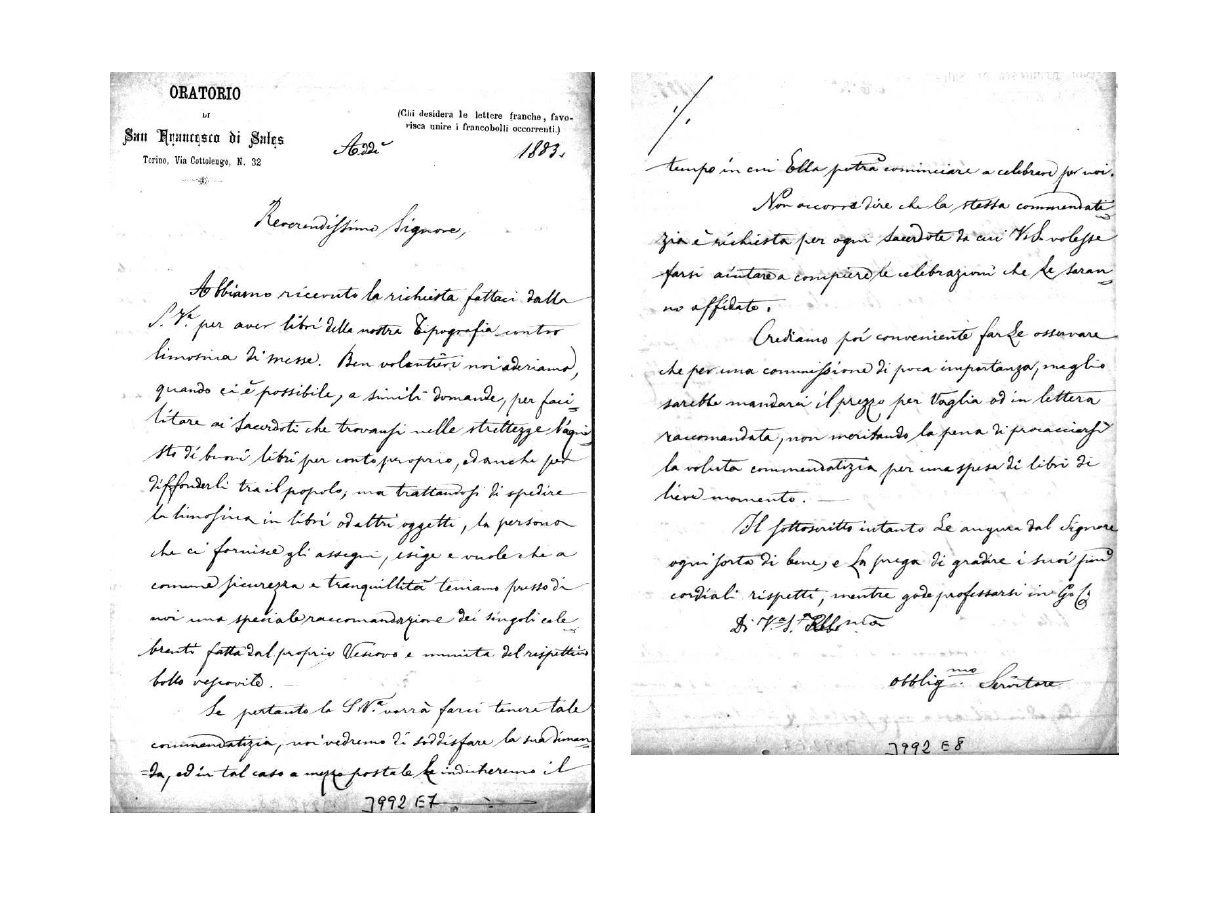 ORATORIO
DI
San Francesco di Sales
Torino, Via Cottolengo, N. 32
(Chi desidera le lettere franche, favo-
risca unire i francobolli occorrenti.)
Addì 1883.
Reverendissimo Signore,
Abbiamo ricevuto la richiesta fattaci dalla
S. Va. per aver libri della nostra Tipografia contro
limosina di messe. Ben volentieri noi aderiamo,
quando ci è possibile, a simili domande, per faci=
litare ai Sacerdoti che trovansi nelle strettezze l'aqui
sto di buoni libri per conto proprio, ed anche per
diffonderli tra il popolo; ma trattandosi di spedire
la limosina in libri od altri oggetti, la persona
che ci fornisce gli assegni, esige e vuole che a
comune sicurezza e tranquillità teniamo presso di
noi una speciale raccomandazione dei singoli cele
branti fatta dal proprio Vescovo e munita del rispettivo
bollo vescovile.
Se pertanto la S. Va. vorrà farci tenere tale
commendatizia, noi vedremo di soddisfare la sua diman=
=da, ed in tal caso a mezzo postale Le indicheremo il
J992 E7
./.
tempo in cui Ella potrà cominciare a celebrare per noi.
Non accorre dire che la stessa commendati=
zia è richiesta per ogni Sacerdote da cui V. S. volesse
farsi aiutare a compiere le celebrazioni che Le saran=
no affidate.
Crediamo poi conveniente farLe osservare
che per una commissione di poca importanza, meglio
sarebbe mandarci il prezzo per Vaglia od in lettera
raccomandata, non meritando la pena di procacciarsi
la voluta commendatizia per una spesa di libri di
lieve momento. —
Il sottoscritto intanto Le augura dal Signore
ogni sorta di bene, e La prega di gradire i suoi più
cordiali rispetti, mentre gode professarsi in G. C.
Di Va. S.
obblig.mo Servitore
J992 E8